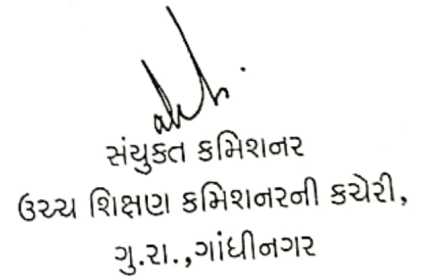 સંયુક્ત કમિશનર
ઉચ્ચ શિક્ષણ કમિશનરની કચેરી,
ગુ.રા.,ગાંધીનગર